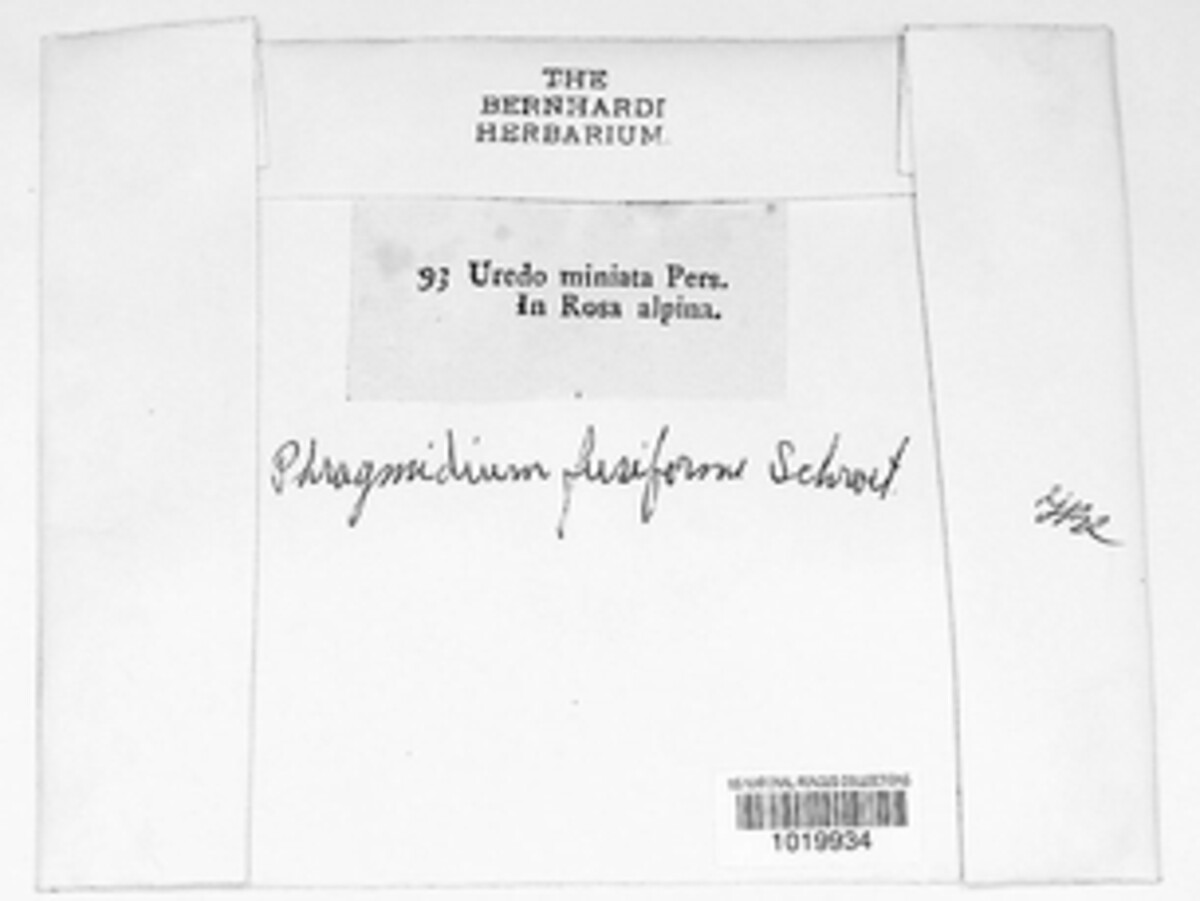 THE
BERNHARDI
HERBARIUM.
93 Uredo miniata Pers.
In Rosa alpina.
Phragmidium fusiforme Schroet.
US NATIONAL FUNGUS COLLECTIONS
1019934